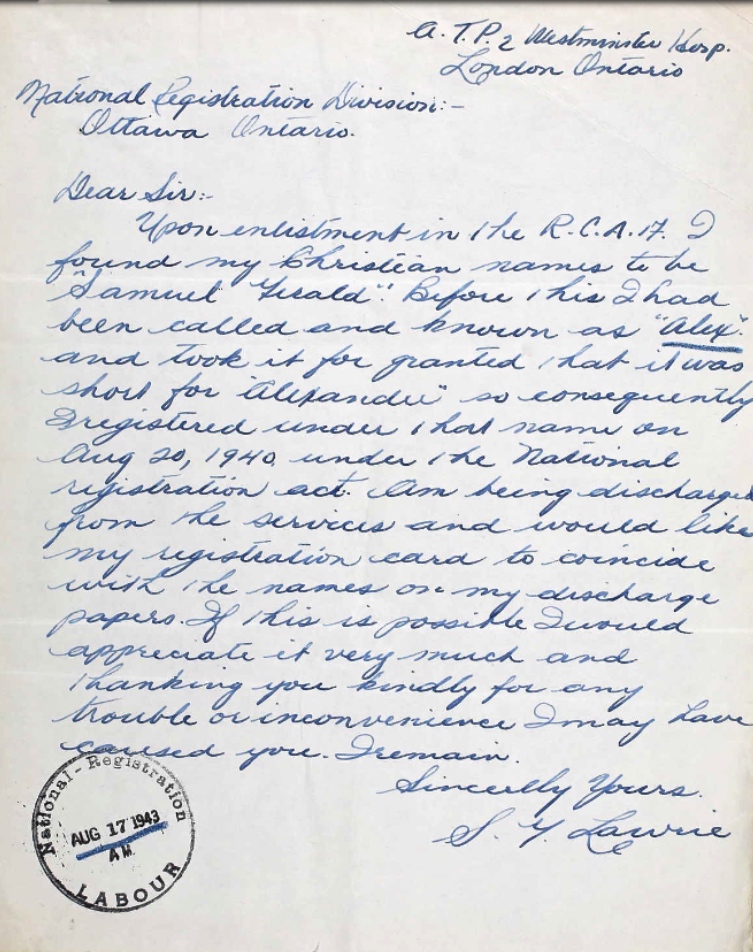 A. T. P. 2 Westminster Hosp.
London Ontario
National Registration Division:-
Ottawa Ontario.
Dear Sir:-
Upon enlistment in the R.C.A.F. I
found my Christian names to be
"Samuel Gerald". Before this I had
been called and known as "Alex".
and took it for granted that it was
short for "Alexander" so consequently
I registered under that name on
Aug 20, 1940, under the National
registration act. Am being discharged
from the services and would like
my registration card to coincide
with the names on my discharge
papers. If this is possible I would
appreciate it very much and
thanking you kindly for any
trouble or inconvenience I may have
caused you. I remain.
Sincerely Yours.
S. G. Lawrie
National - Registration
AUG 17 1943
AM
LABOUR